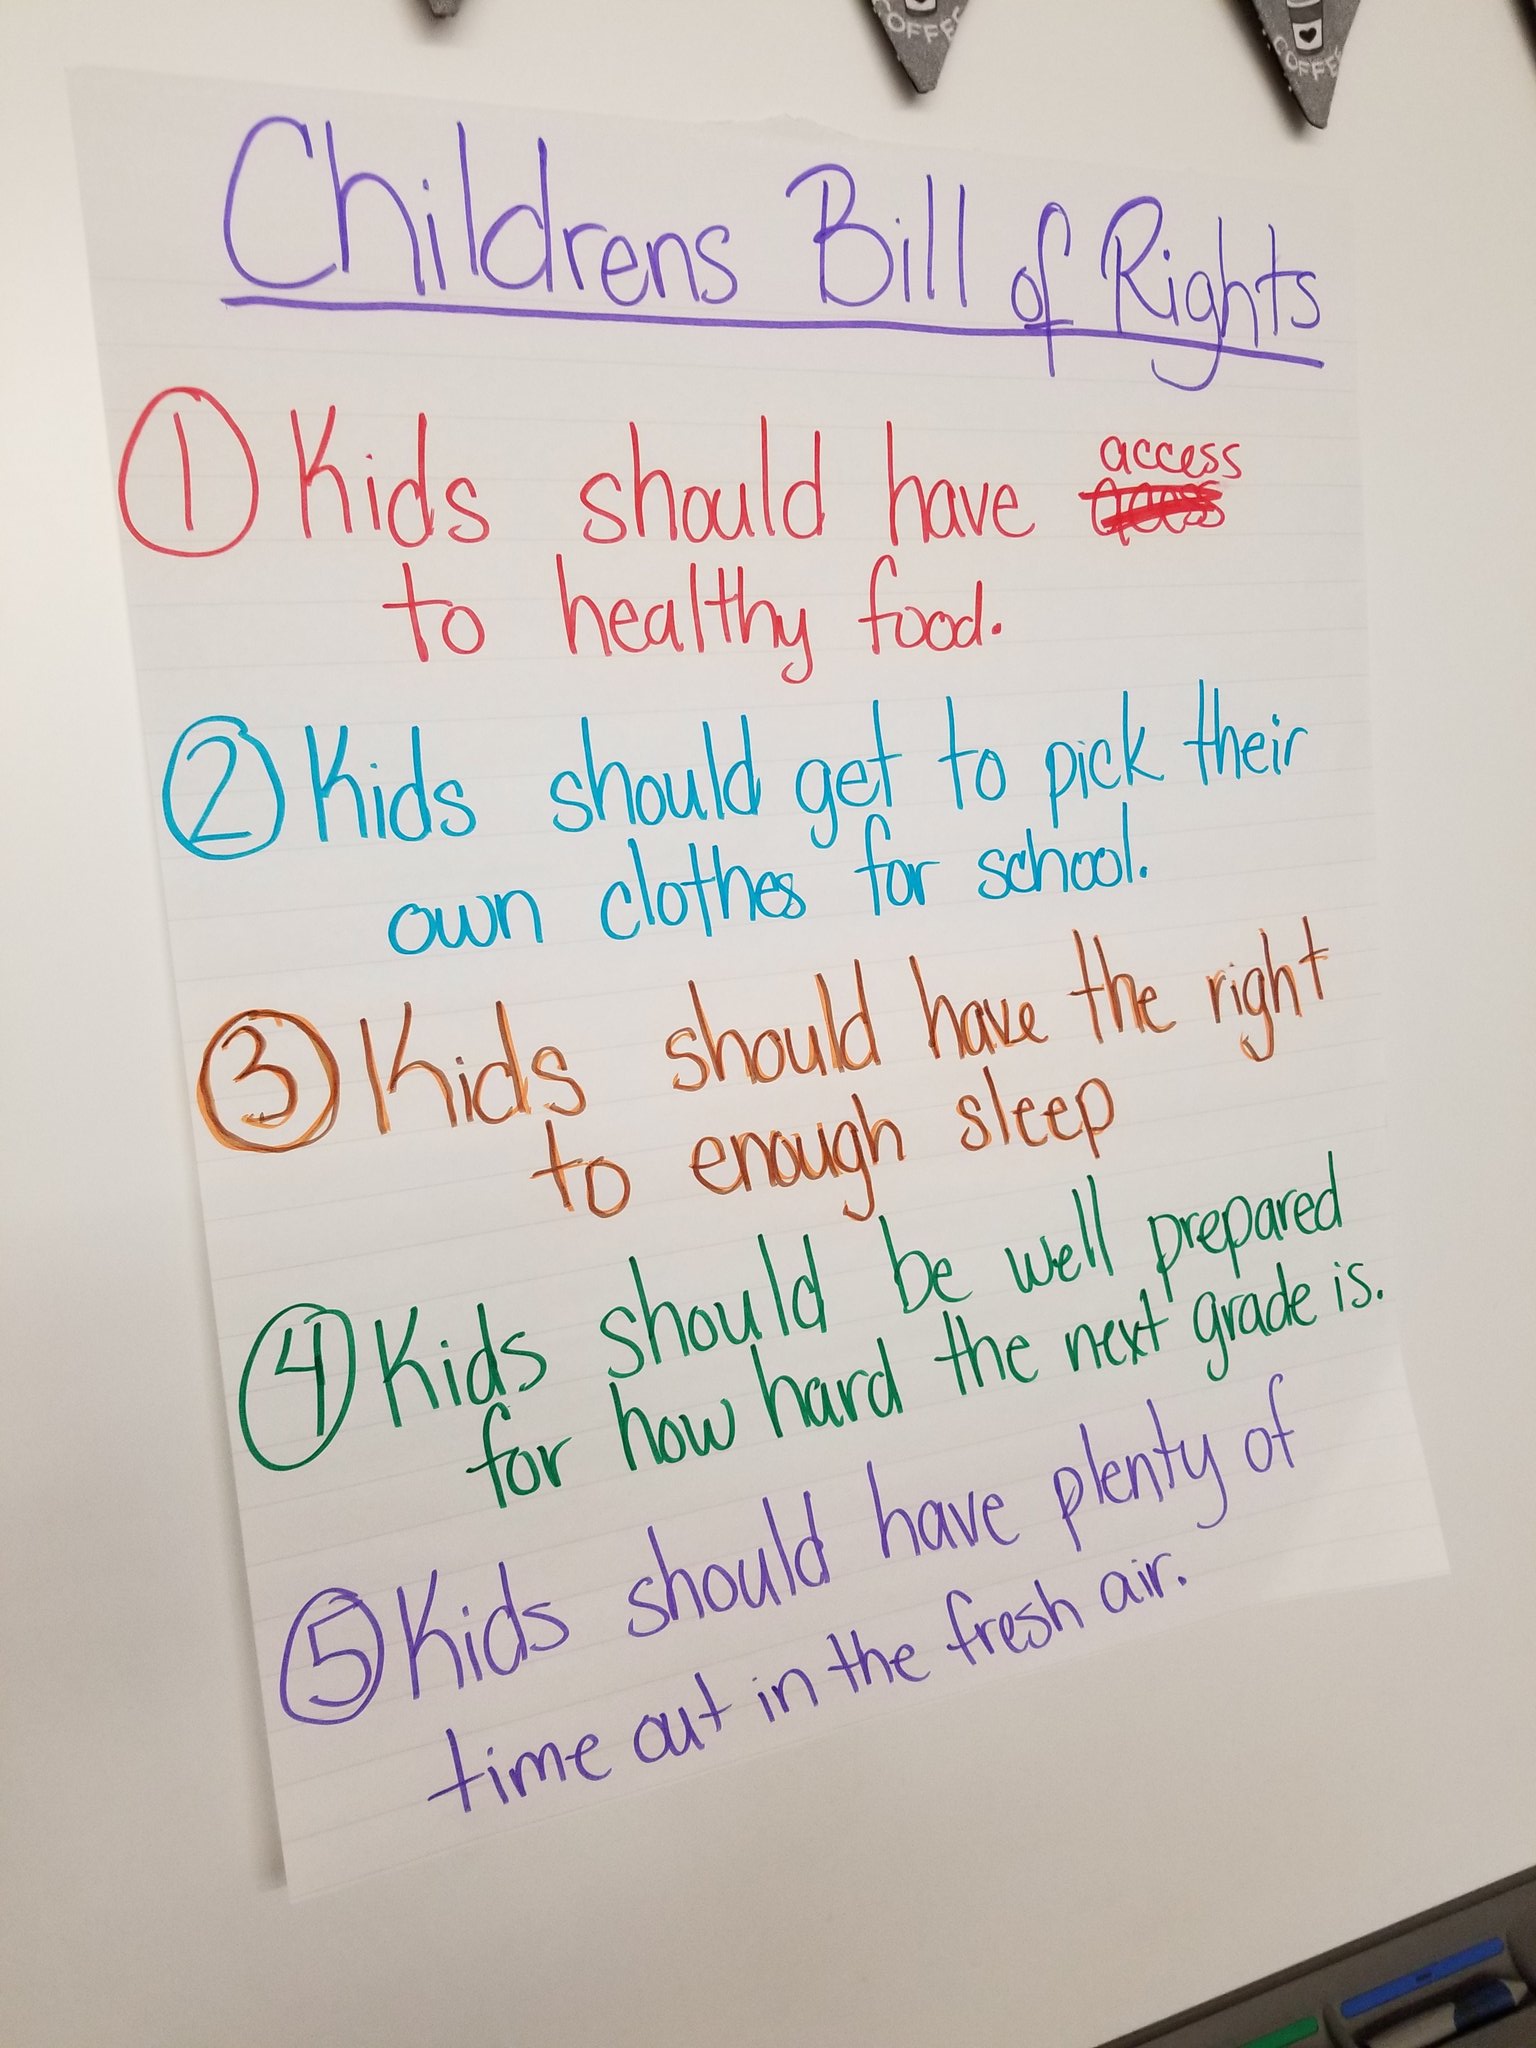 COFFEE
COFFEE
Childrens Bill of Rights
1 Kids should have access
to healthy food.
2 Kids should get to pick their
own clothes for school.
3 Kids should have the right
to enough sleep
4 Kids should be well prepared
for how hard the next grade is.
5 Kids should have plenty of
time out in the fresh air.